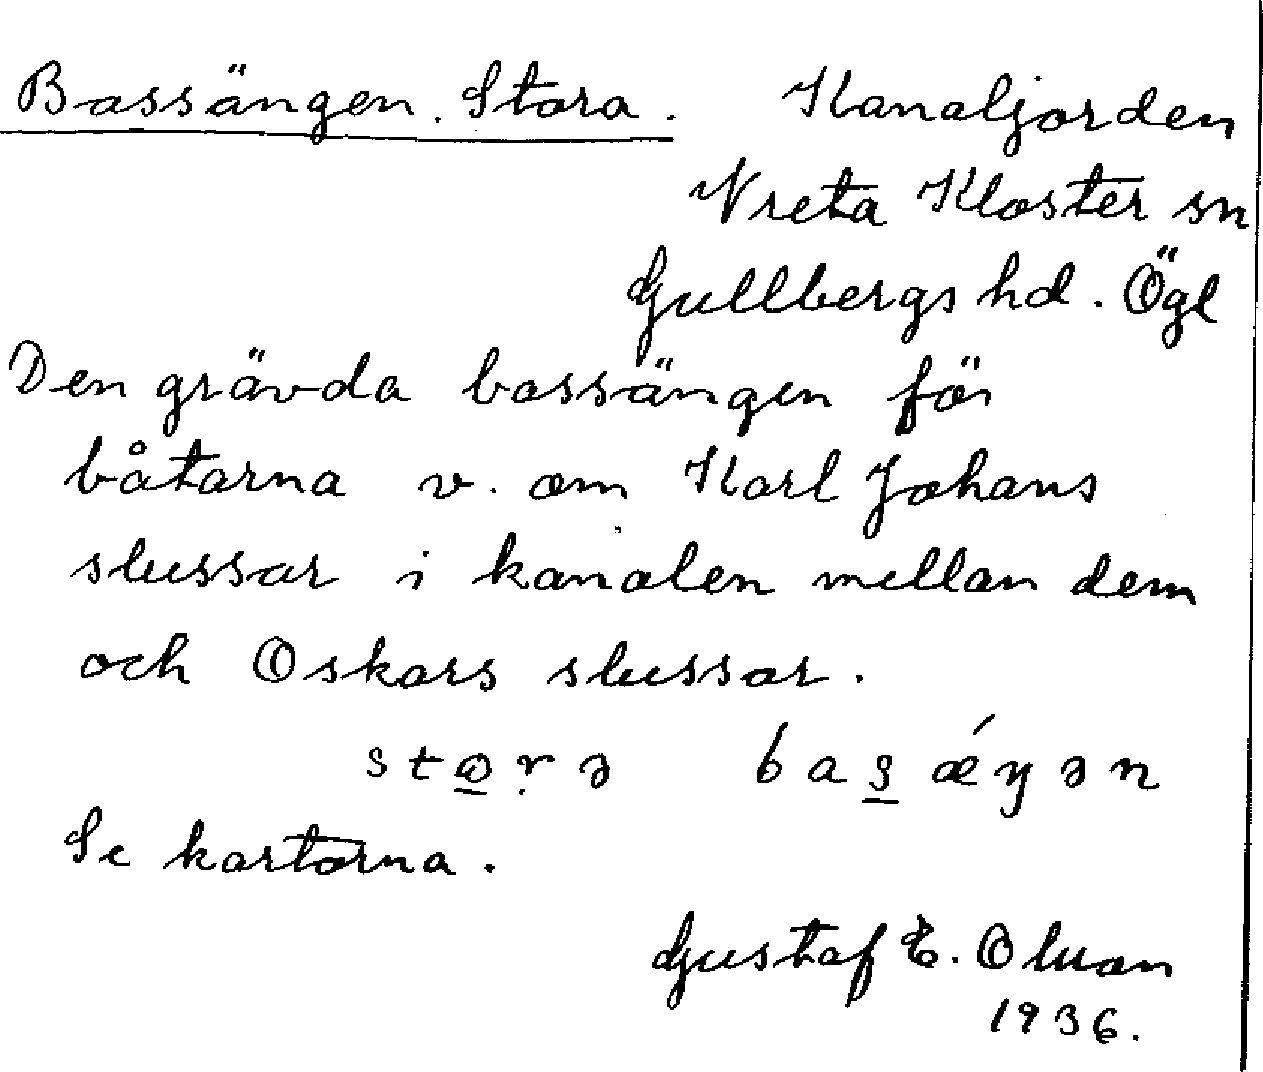 Bassängen. Stora. Kanaljorden
Vreta Kloster sn
Gullbergs hd. Ögl
Den grävda bassängen för
båtarna v. om Karl Johans
slussar i kanalen mellan dem
och Oskars slussar.
stọrə basǽŋən
Se kartorna.
Gustaf E.
1936.